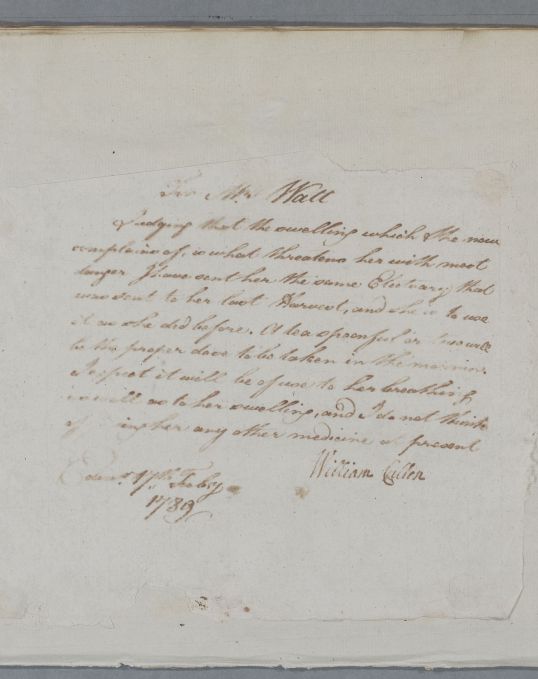 For Mrs Wall
Judging that the swelling which She now
complains of, is what threatens her with most
danger I have sent her the same Electuary that
was sent to her last Harvest, and she is to use
it as she did before. A tea spoonful or two will
be the proper dose to be taken in the morning
I expect it will be of use to her breathing,
as well as to her swelling, and I do not think
of her any other medicine at present
William Cullen
Edinr. 17th. Feby
1789